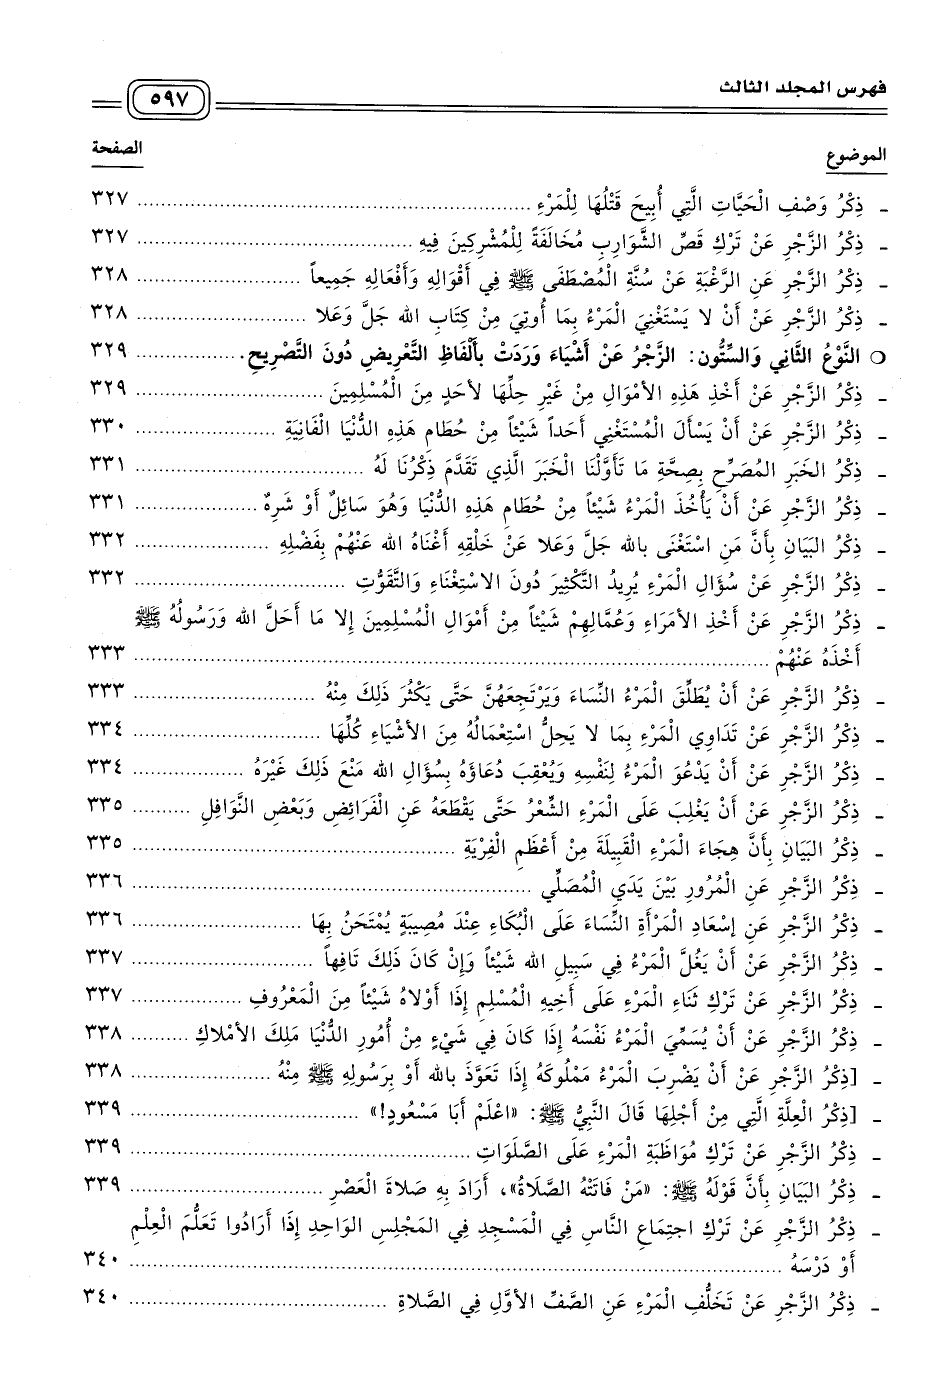 فهرس المجلد الثالث ٥٩٧
الموضوع الصفحة
- ذِكْرُ وَصْفِ الْحَيَّاتِ الَّتِي أُبِيحَ قَتْلُهَا لِلْمَرْءِ ........ ٣٢٧
- ذِكْرُ الزَّجْرِ عَنْ تَرْكِ قَصِّ الشَّوَارِبِ مُخَالَفَةً لِلْمُشْرِكِينَ فِيهِ ........ ٣٢٧
- ذِكْرُ الزَّجْرِ عَنِ الرَّغْبَةِ عَنْ سُنَّةِ الْمُصْطَفَى ﷺ فِي أَقْوَالِهِ وَأَفْعَالِهِ جَمِيعاً ........ ٣٢٨
- ذِكْرُ الزَّجْرِ عَنْ أَنْ لا يَسْتَغْنِيَ الْمَرْءُ بِمَا أُوتِيَ مِنْ كِتَابِ الله جَلَّ وَعَلا ........ ٣٢٨
○ النَّوْعُ الثَّانِي وَالسِّتُّون: الزَّجْرُ عَنْ أَشْيَاءَ وَرَدَتْ بِأَلْفَاظِ التَّعْرِيضِ دُونَ التَّصْرِيحِ. ........ ٣٢٩
- ذِكْرُ الزَّجْرِ عَنْ أَخْذِ هَذِهِ الأَمْوَالِ مِنْ غَيْرِ حِلِّهَا لأَحَدٍ مِنَ الْمُسْلِمِينَ ........ ٣٢٩
- ذِكْرُ الزَّجْرِ عَنْ أَنْ يَسْأَلَ الْمُسْتَغْنِي أَحَداً شَيْئاً مِنْ حُطَامِ هَذِهِ الدُّنْيَا الْفَانِيَةِ ........ ٣٣٠
- ذِكْرُ الخَبَرِ المُصَرِّحِ بِصِحَّةِ مَا تَأَوَّلْنَا الْخَبَرَ الَّذِي تَقَدَّمَ ذِكْرُنَا لَهُ ........ ٣٣١
- ذِكْرُ الزَّجْرِ عَنْ أَنْ يَأْخُذَ الْمَرْءُ شَيْئاً مِنْ حُطَامِ هَذِهِ الدُّنْيَا وَهُوَ سَائِلٌ أَوْ شَرِهٌ ........ ٣٣١
- ذِكْرُ البَيَانِ بِأَنَّ مَنِ اسْتَغْنَى بالله جَلَّ وَعَلا عَنْ خَلْقِهِ أَغْنَاهُ الله عَنْهُمْ بِفَضْلِهِ ........ ٣٣٢
- ذِكْرُ الزَّجْرِ عَنْ سُؤَالِ الْمَرْءِ يُرِيدُ التَّكْثِيرَ دُونَ الاسْتِغْنَاءِ وَالتَّقَوُّتِ ........ ٣٣٢
- ذِكْرُ الزَّجْرِ عَنْ أَخْذِ الأمَرَاءِ وَعُمَّالِهِمْ شَيْئاً مِنْ أَمْوَالِ الْمُسْلِمِينَ إِلا مَا أَحَلَّ الله وَرَسُولُهُ ﷺ
أَخْذَهُ عَنْهُمْ ........ ٣٣٣
- ذِكْرُ الزَّجْرِ عَنْ أَنْ يُطَلِّقَ الْمَرْءُ النِّسَاءَ وَيَرْتَجِعَهُنَّ حَتَّى يَكْثُرَ ذَلِكَ مِنْهُ ........ ٣٣٣
- ذِكْرُ الزَّجْرِ عَنْ تَدَاوِي الْمَرْءِ بِمَا لا يَحِلُّ اسْتِعْمَالُهُ مِنَ الأشْيَاءِ كُلِّهَا ........ ٣٣٤
- ذِكْرُ الزَّجْرِ عَنْ أَنْ يَدْعُوَ الْمَرْءُ لِنَفْسِهِ وَيُعْقِبَ دُعَاؤَهُ بِسُؤَالِ الله مَنْعَ ذَلِكَ غَيْرَهُ ........ ٣٣٤
- ذِكْرُ الزَّجْرِ عَنْ أَنْ يَغْلِبَ عَلَى الْمَرْءِ الشِّعْرُ حَتَّى يَقْطَعَهُ عَنِ الْفَرَائِضِ وَبَعْضِ النَّوَافِلِ ........ ٣٣٥
- ذِكْرُ البَيَانِ بِأَنَّ هِجَاءَ الْمَرْءِ الْقَبِيلَةَ مِنْ أَعْظَمِ الْفِرْيَةِ ........ ٣٣٥
- ذِكْرُ الزَّجْرِ عَنِ الْمُرُورِ بَيْنَ يَدَيِ الْمُصَلِّي ........ ٣٣٦
- ذِكْرُ الزَّجْرِ عَنِ إسْعَادِ الْمَرْأَةِ النِّسَاءَ عَلَى الْبُكَاءِ عِنْدَ مُصِيبَةٍ يُمْتَحَنُ بِهَا ........ ٣٣٦
- ذِكْرُ الزَّجْرِ عَنْ أَنْ يَغُلَّ الْمَرْءُ فِي سَبِيلِ الله شَيْئاً وَإِنْ كَانَ ذَلِكَ تَافِهاً ........ ٣٣٧
- ذِكْرُ الزَّجْرِ عَنْ تَرْكِ ثَنَاءِ الْمَرْءِ عَلَى أَخِيهِ الْمُسْلِمِ إِذَا أَوْلاهُ شَيْئاً مِنَ الْمَعْرُوفِ ........ ٣٣٧
- ذِكْرُ الزَّجْرِ عَنْ أَنْ يُسَمِّيَ الْمَرْءُ نَفْسَهُ إِذَا كَانَ فِي شَيْءٍ مِنْ أُمُورِ الدُّنْيَا مَلِكَ الأمْلاكِ ........ ٣٣٨
- [ذِكْرُ الزَّجْرِ عَنْ أَنْ يَضْرِبَ الْمَرْءُ مَمْلُوكَهُ إِذَا تَعَوَّذَ بالله أَوْ بِرَسُولِهِ ﷺ مِنْهُ ........ ٣٣٨
- [ذِكْرُ الْعِلَّةِ الَّتِي مِنْ أَجْلِهَا قَالَ النَّبِيُّ ﷺ: «اعْلَمْ أَبَا مَسْعُودٍ!» ........ ٣٣٩
- ذِكْرُ الزَّجْرِ عَنْ تَرْكِ مُوَاظَبَةِ الْمَرْءِ عَلَى الصَّلَوَاتِ ........ ٣٣٩
- ذِكْرُ البَيَانِ بِأَنَّ قَوْلَهُ ﷺ: «مَنْ فَاتَتْهُ الصَّلَاةُ»، أَرَادَ بِهِ صَلاةَ الْعَصْرِ ........ ٣٣٩
- ذِكْرُ الزَّجْرِ عَنْ تَرْكِ اجتِمَاعِ النَّاسِ فِي الْمَسْجِدِ فِي المَجْلِسِ الوَاحِدِ إِذَا أَرَادُوا تَعَلُّمَ الْعِلْمِ
أَوْ دَرْسَهُ ........ ٣٤٠
- ذِكْرُ الزَّجْرِ عَنْ تَخَلُّفِ الْمَرْءِ عَنِ الصَّفِّ الأوَّلِ فِي الصَّلاةِ ........ ٣٤٠